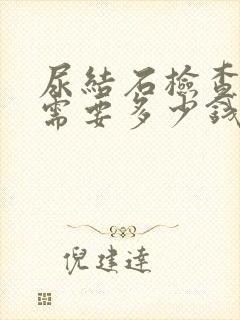 尿結石檢查
需要多少錢
倪建達